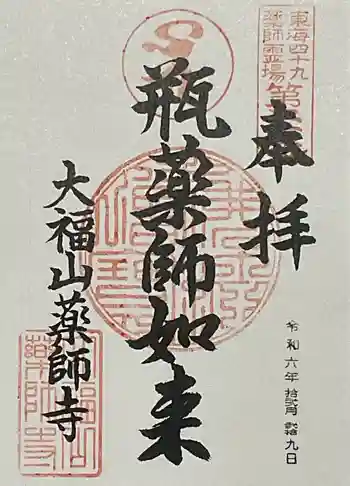 東海四十九
薬師霊場
奉拝
瓶薬師如来
大福山薬師寺
令和六年拾弐月弐拾九日